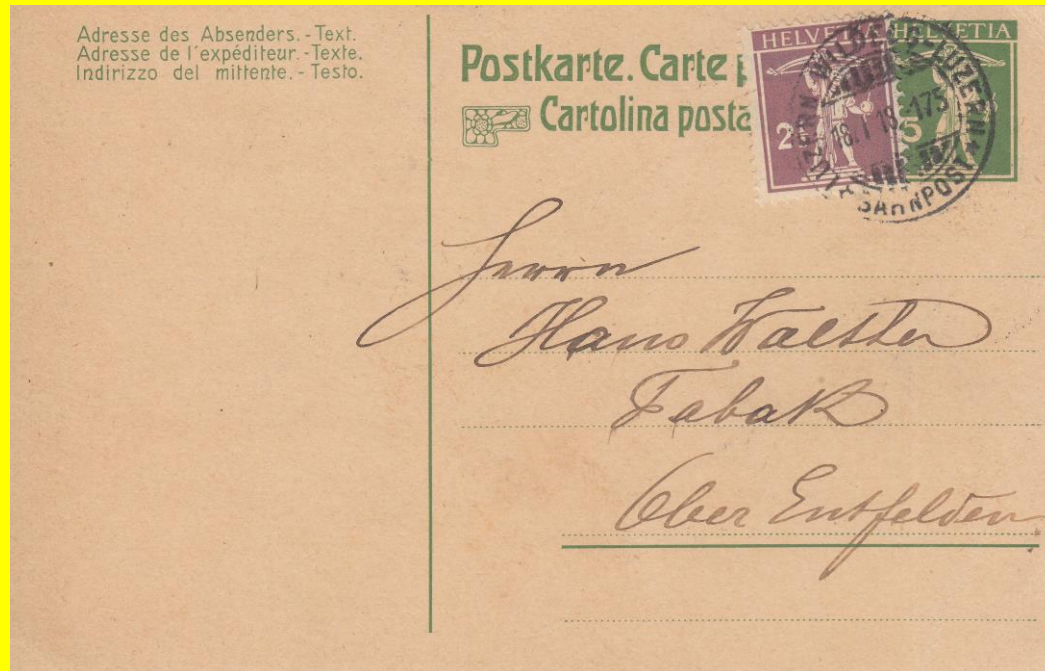 Adresse des Absenders. - Text.
Adresse de l'expéditeur. - Texte.
Indirizzo del mittente. - Testo.
Postkarte. Carte p
Cartolina posta
HELVETIA
2
HELVETIA
5
LUZERN LUZERN
18. I 18.-175
BAHNPOST
Herrn
Hans Walther
Tabak
Ober Entfelden